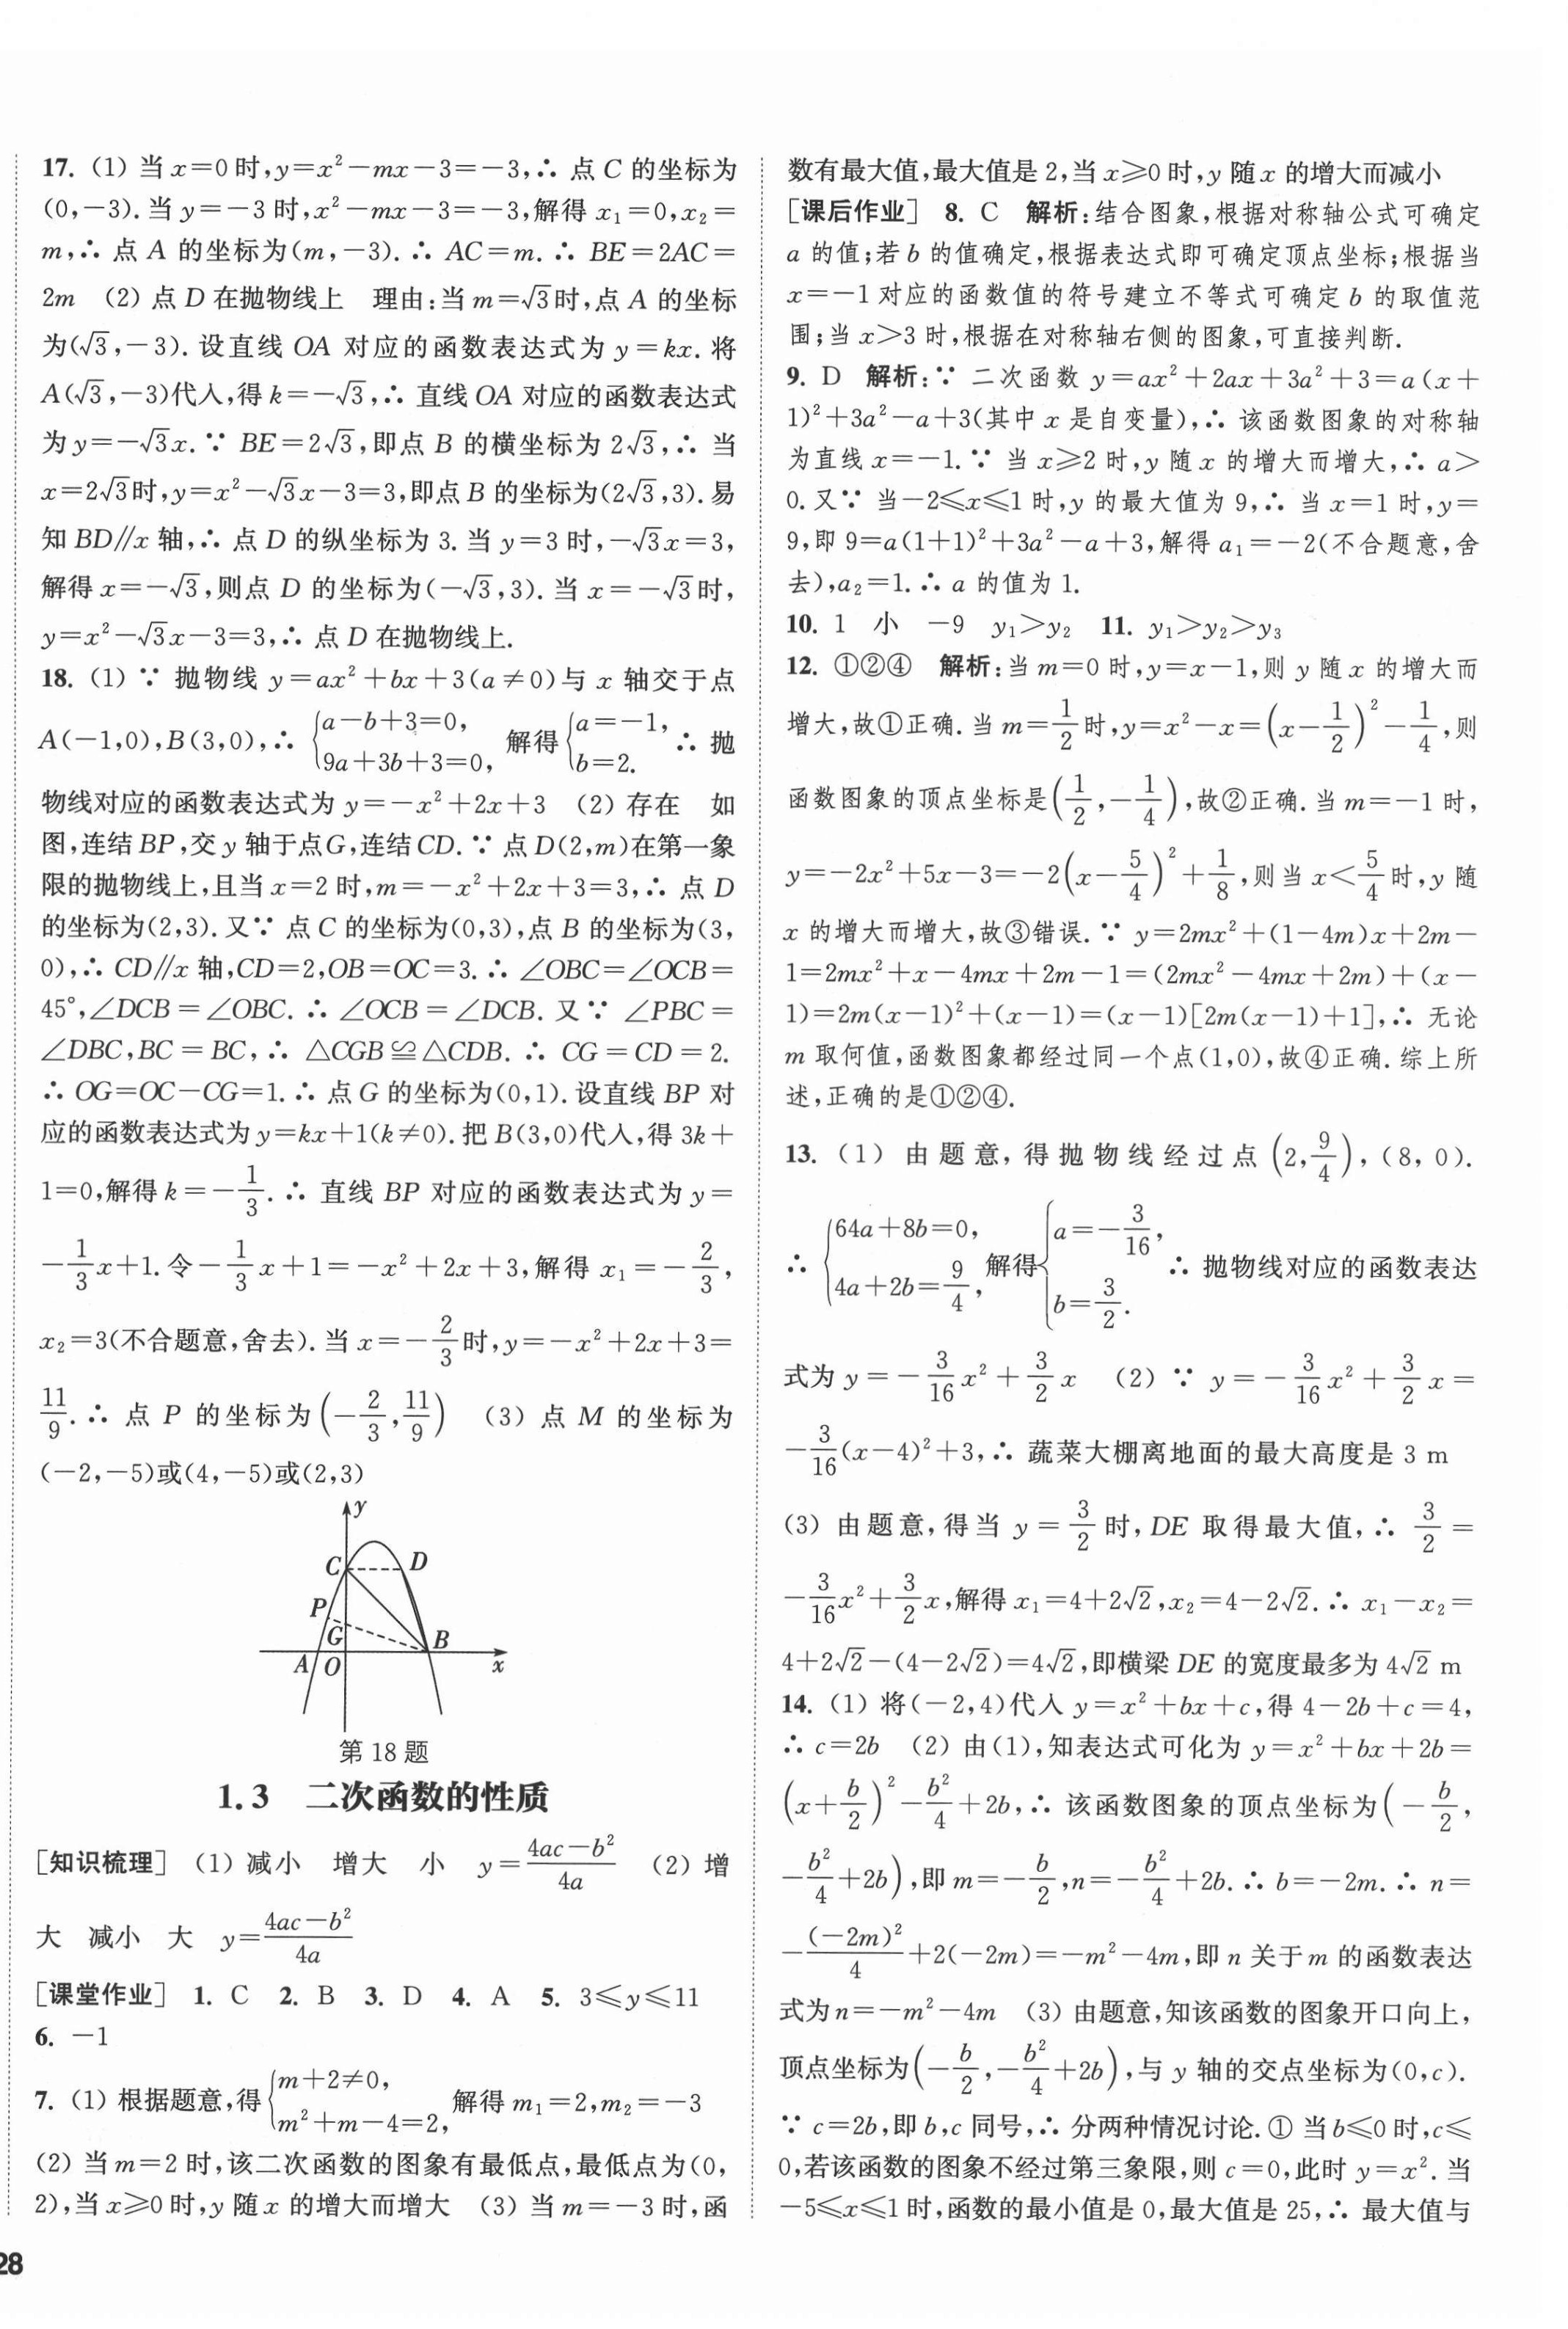 17. (1) 当 x=0 时,y=x²－mx－3=－3,∴ 点 C 的坐标为
(0,－3). 当 y=－3 时,x²－mx－3=－3,解得 x₁=0,x₂=
m,∴ 点 A 的坐标为(m,－3). ∴ AC=m. ∴ BE=2AC=
2m　(2) 点 D 在抛物线上　理由:当 m=√3时,点 A 的坐标
为(√3,－3). 设直线 OA 对应的函数表达式为 y=kx. 将
A(√3,－3)代入,得 k=－√3,∴ 直线 OA 对应的函数表达式
为 y=－√3x. ∵ BE=2√3,即点 B 的横坐标为 2√3,∴ 当
x=2√3时,y=x²－√3x－3=3,即点 B 的坐标为(2√3,3). 易
知 BD∥x 轴,∴ 点 D 的纵坐标为 3. 当 y=3 时,－√3x=3,
解得 x=－√3,则点 D 的坐标为(－√3,3). 当 x=－√3时,
y=x²－√3x－3=3,∴ 点 D 在抛物线上.
18. (1) ∵ 抛物线 y=ax²+bx+3(a≠0)与 x 轴交于点
A(－1,0),B(3,0),∴ {a－b+3=0, 9a+3b+3=0, 解得{a=－1, b=2. ∴ 抛
物线对应的函数表达式为 y=－x²+2x+3　(2) 存在　如
图,连结 BP,交 y 轴于点G,连结 CD. ∵ 点 D(2,m)在第一象
限的抛物线上,且当 x=2 时,m=－x²+2x+3=3,∴ 点 D
的坐标为(2,3). 又∵ 点 C 的坐标为(0,3),点 B 的坐标为(3,
0),∴ CD∥x 轴,CD=2,OB=OC=3. ∴ ∠OBC=∠OCB=
45°,∠DCB=∠OBC. ∴ ∠OCB=∠DCB. 又∵ ∠PBC=
∠DBC,BC=BC,∴ △CGB≌△CDB. ∴ CG=CD=2.
∴ OG=OC－CG=1. ∴ 点 G 的坐标为(0,1). 设直线 BP 对
应的函数表达式为 y=kx+1(k≠0). 把 B(3,0)代入,得 3k+
1=0,解得 k=－1/3. ∴ 直线 BP 对应的函数表达式为 y=
－1/3x+1. 令－1/3x+1=－x²+2x+3,解得 x₁=－2/3,
x₂=3(不合题意,舍去). 当 x=－2/3时,y=－x²+2x+3=
11/9. ∴ 点 P 的坐标为(－2/3,11/9)　(3) 点 M 的坐标为
(－2,－5)或(4,－5)或(2,3)
y
C
D
P
G
B
A
O
x
第 18 题
1.3　二次函数的性质
[知识梳理]　(1) 减小　增大　小　y=(4ac－b²)/4a　(2) 增
大　减小　大　y=(4ac－b²)/4a
[课堂作业]　1. C　2. B　3. D　4. A　5. 3≤y≤11
6. －1
7. (1) 根据题意,得{m+2≠0, m²+m－4=2, 解得 m₁=2,m₂=－3
(2) 当 m=2 时,该二次函数的图象有最低点,最低点为(0,
2),当 x≥0 时,y 随 x 的增大而增大　(3) 当 m=－3 时,函
28
数有最大值,最大值是 2,当 x≥0 时,y 随 x 的增大而减小
[课后作业]　8. C　解析:结合图象,根据对称轴公式可确定
a 的值;若 b 的值确定,根据表达式即可确定顶点坐标;根据当
x=－1 对应的函数值的符号建立不等式可确定 b 的取值范
围;当 x>3 时,根据在对称轴右侧的图象,可直接判断.
9. D　解析:∵ 二次函数 y=ax²+2ax+3a²+3=a(x+
1)²+3a²－a+3(其中 x 是自变量),∴ 该函数图象的对称轴
为直线 x=－1. ∵ 当 x≥2 时,y 随 x 的增大而增大,∴ a>
0. 又∵ 当－2≤x≤1 时,y 的最大值为 9,∴ 当 x=1 时,y=
9,即 9=a(1+1)²+3a²－a+3,解得 a₁=－2(不合题意,舍
去),a₂=1. ∴ a 的值为 1.
10. 1　小　－9　y₁>y₂　11. y₁>y₂>y₃
12. ①②④　解析:当 m=0 时,y=x－1,则 y 随 x 的增大而
增大,故①正确. 当 m=1/2时,y=x²－x=(x－1/2)²－1/4,则
函数图象的顶点坐标是(1/2,－1/4),故②正确. 当 m=－1 时,
y=－2x²+5x－3=－2(x－5/4)²+1/8,则当 x<5/4时,y 随
x 的增大而增大,故③错误. ∵ y=2mx²+(1－4m)x+2m－
1=2mx²+x－4mx+2m－1=(2mx²－4mx+2m)+(x－
1)=2m(x－1)²+(x－1)=(x－1)[2m(x－1)+1],∴ 无论
m 取何值,函数图象都经过同一个点(1,0),故④正确. 综上所
述,正确的是①②④.
13. (1) 由题意,得抛物线经过点(2,9/4),(8,0).
∴ {64a+8b=0, 4a+2b=9/4, 解得{a=－3/16, b=3/2. ∴ 抛物线对应的函数表达
式为 y=－3/16x²+3/2x　(2) ∵ y=－3/16x²+3/2x=
－3/16(x－4)²+3,∴ 蔬菜大棚离地面的最大高度是 3 m
(3) 由题意,得当 y=3/2时,DE 取得最大值,∴ 3/2=
－3/16x²+3/2x,解得 x₁=4+2√2,x₂=4－2√2. ∴ x₁－x₂=
4+2√2－(4－2√2)=4√2,即横梁 DE 的宽度最多为 4√2 m
14. (1) 将(－2,4)代入 y=x²+bx+c,得 4－2b+c=4,
∴ c=2b　(2) 由(1),知表达式可化为 y=x²+bx+2b=
(x+b/2)²－b²/4+2b,∴ 该函数图象的顶点坐标为(－b/2,
－b²/4+2b),即 m=－b/2,n=－b²/4+2b. ∴ b=－2m. ∴ n=
－(－2m)²/4+2(－2m)=－m²－4m,即 n 关于 m 的函数表达
式为 n=－m²－4m　(3) 由题意,知该函数的图象开口向上,
顶点坐标为(－b/2,－b²/4+2b),与 y 轴的交点坐标为(0,c).
∵ c=2b,即 b,c 同号,∴ 分两种情况讨论. ① 当 b≤0 时,c≤
0,若该函数的图象不经过第三象限,则 c=0,此时 y=x². 当
－5≤x≤1 时,函数的最小值是 0,最大值是 25,∴ 最大值与